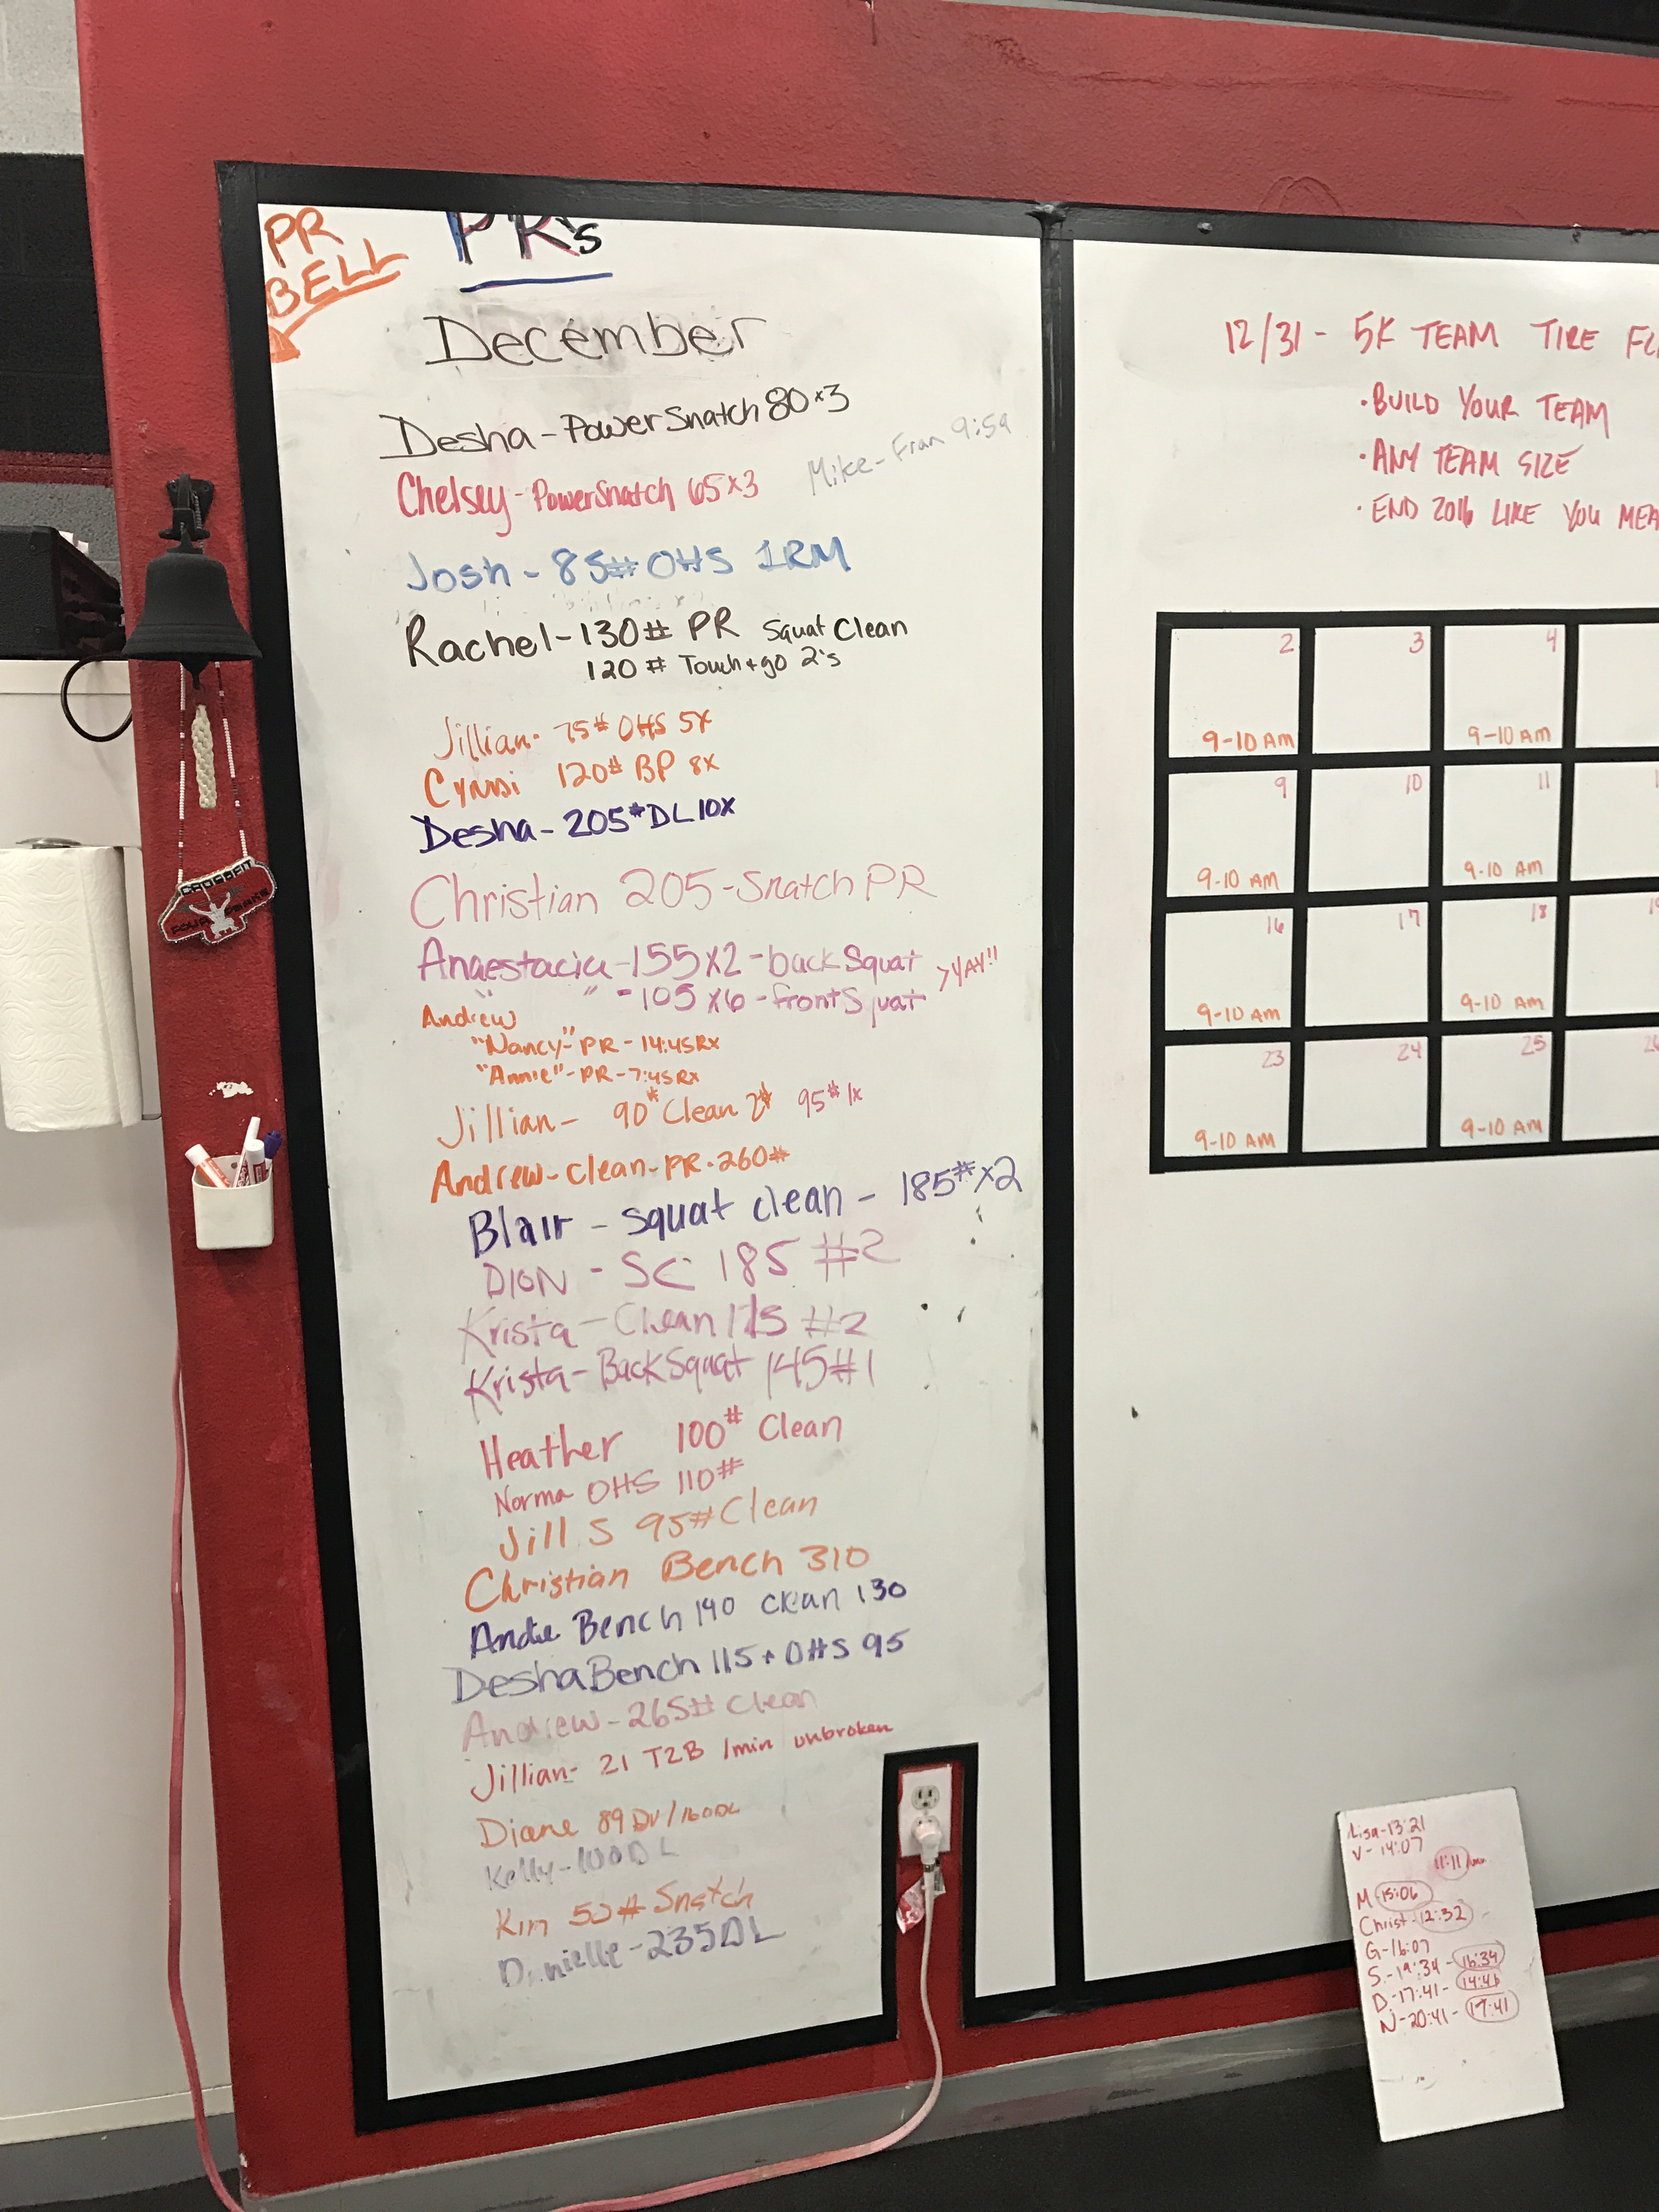 PR
BELL
PR's
December
Desha - Power Snatch 80x3
Mike - Fran 9:59
Chelsey - Power Snatch 65x3
Josh - 85# OHS 1RM
Rachel - 130# PR Squat Clean
120# Touch + go 2's
Jillian - 75# OHS 5x
120# BP 8x
Desha - 205# DL 10x
Christian 205 - Snatch PR
Anaestacia - 155x2 - back Squat
" " - 105x6 - front Squat
> YAY!!
Andrew
"Nancy" - PR - 14:45 Rx
"Annie" - PR - 7:45 Rx
Jillian - 90# Clean 95# 1x
Andrew - Clean - PR - 260#
Blair - squat clean - 185# x2
DION - SC 185 #2
Krista - Clean #2
Krista - Back Squat 145 #1
Heather 100# Clean
Norma OHS 110#
Jill S 95# Clean
Christian Bench 310
Andie Bench 140 clean 130
Desha Bench 115 + OHS 95
Andrew - 265# Clean
Jillian - 21 T2B 1min unbroken
Diane
Kelly - DL
Kim Snatch
Danielle - 235 DL
12/31 - 5K TEAM TIRE
• BUILD YOUR TEAM
• ANY TEAM SIZE
• END 2016 LIKE YOU
2 3 4
9-10 AM 9-10 AM
9 10 11
9-10 AM 9-10 AM
16 17 18
9-10 AM 9-10 AM
23 24 25
9-10 AM 9-10 AM
CROSSFIT
FOUR PEAKS
Lisa - 13:21
V - 14:07
11:11
M 15:06
Christ - 12:32
G - 16:07
S - 19:34 - 16:34
D - 17:41 - 14:46
N - 20:41 - 17:41